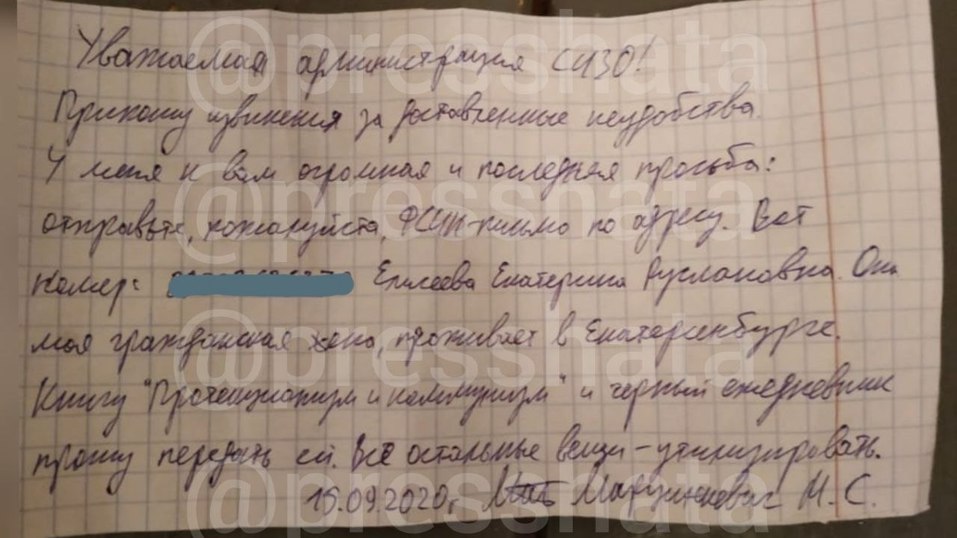 @presshata
Уважаемая администрация СИЗО!
Приношу извинения за доставленные неудобства.
У меня к вам огромная и последняя просьба:
отправьте, пожалуйста, ФСИН-письмо по адресу. Вот
номер: Елисеева Екатерина Руслановна. Она
@presshata
моя гражданская жена, проживает в Екатеринбурге.
Книгу "Протекционизм и коммунизм" и черный ежедневник
прошу передать ей. Все остальные вещи - утилизировать.
15.09.2020г. Марцинкевич М. С.
@presshata